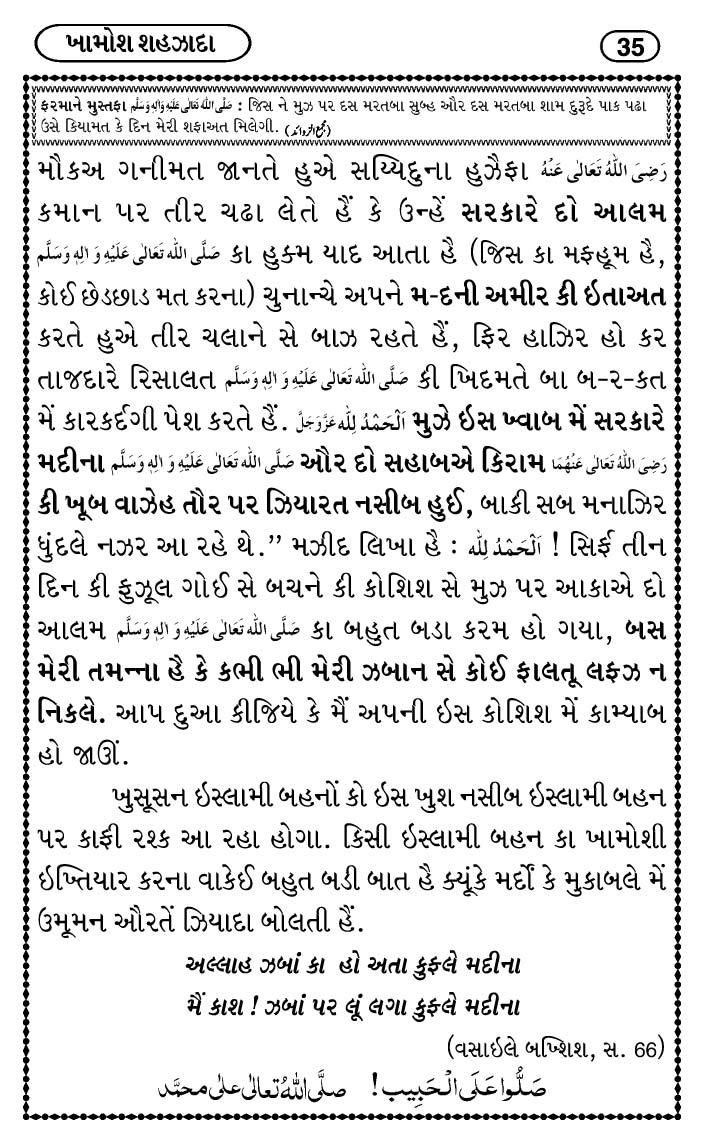 ખામોશ શહઝાદા
35
ફરમાને મુસ્તફા صَلَّى اللهُ تَعَالٰى عَلَيْهِ وَاٰلِهٖ وَسَلَّم : જિસ ને મુઝ પર દસ મરતબા સુબ્હ ઔર દસ મરતબા શામ દુરૂદે પાક પઢા
ઉસે કિયામત કે દિન મેરી શફાઅત મિલેગી. (مجمع الزوائد)
મૌકઅ ગનીમત જાનતે હુએ સય્યિદુના હુઝૈફા رَضِیَ اللهُ تَعَالٰى عَنْهُ
કમાન પર તીર ચઢા લેતે હૈં કે ઉન્હેં સરકારે દો આલમ
صَلَّى اللهُ تَعَالٰى عَلَيْهِ وَاٰلِهٖ وَسَلَّم કા હુક્મ યાદ આતા હૈ (જિસ કા મફ્હૂમ હૈ,
કોઈ છેડછાડ મત કરના) ચુનાન્ચે અપને મ-દની અમીર કી ઇતાઅત
કરતે હુએ તીર ચલાને સે બાઝ રહતે હૈં, ફિર હાઝિર હો કર
તાજદારે રિસાલત صَلَّى اللهُ تَعَالٰى عَلَيْهِ وَاٰلِهٖ وَسَلَّم કી ખિદમતે બા બ-ર-કત
મેં કારકર્દગી પેશ કરતે હૈં. اَلْحَمْدُ لِلّٰه عَزَّوَجَلَّ મુઝે ઇસ ખ્વાબ મેં સરકારે
મદીના صَلَّى اللهُ تَعَالٰى عَلَيْهِ وَاٰلِهٖ وَسَلَّم ઔર દો સહાબએ કિરામ رَضِیَ اللهُ تَعَالٰى عَنْهُمَا
કી ખૂબ વાઝેહ તૌર પર ઝિયારત નસીબ હુઈ, બાકી સબ મનાઝિર
ધુંદલે નઝર આ રહે થે.” મઝીદ લિખા હૈ : اَلْحَمْدُ لِلّٰه ! સિર્ફ તીન
દિન કી ફુઝૂલ ગોઈ સે બચને કી કોશિશ સે મુઝ પર આકાએ દો
આલમ صَلَّى اللهُ تَعَالٰى عَلَيْهِ وَاٰلِهٖ وَسَلَّم કા બહુત બડા કરમ હો ગયા, બસ
મેરી તમન્ના હૈ કે કભી ભી મેરી ઝબાન સે કોઈ ફાલતૂ લફ્ઝ ન
નિકલે. આપ દુઆ કીજિયે કે મૈં અપની ઇસ કોશિશ મેં કામ્યાબ
હો જાઊં.
ખુસૂસન ઇસ્લામી બહનોં કો ઇસ ખુશ નસીબ ઇસ્લામી બહન
પર કાફી રશ્ક આ રહા હોગા. કિસી ઇસ્લામી બહન કા ખામોશી
ઇખ્તિયાર કરના વાકેઈ બહુત બડી બાત હૈ ક્યૂંકે મર્દોં કે મુકાબલે મેં
ઉમૂમન ઔરતેં ઝિયાદા બોલતી હૈં.
અલ્લાહ ઝબાં કા હો અતા કુફ્લે મદીના
મૈં કાશ ! ઝબાં પર લૂં લગા કુફ્લે મદીના
(વસાઇલે બખ્શિશ, સ. 66)
صَلُّوا عَلَى الْحَبِيب! صلَّى اللهُ تعالٰى على محمَّد